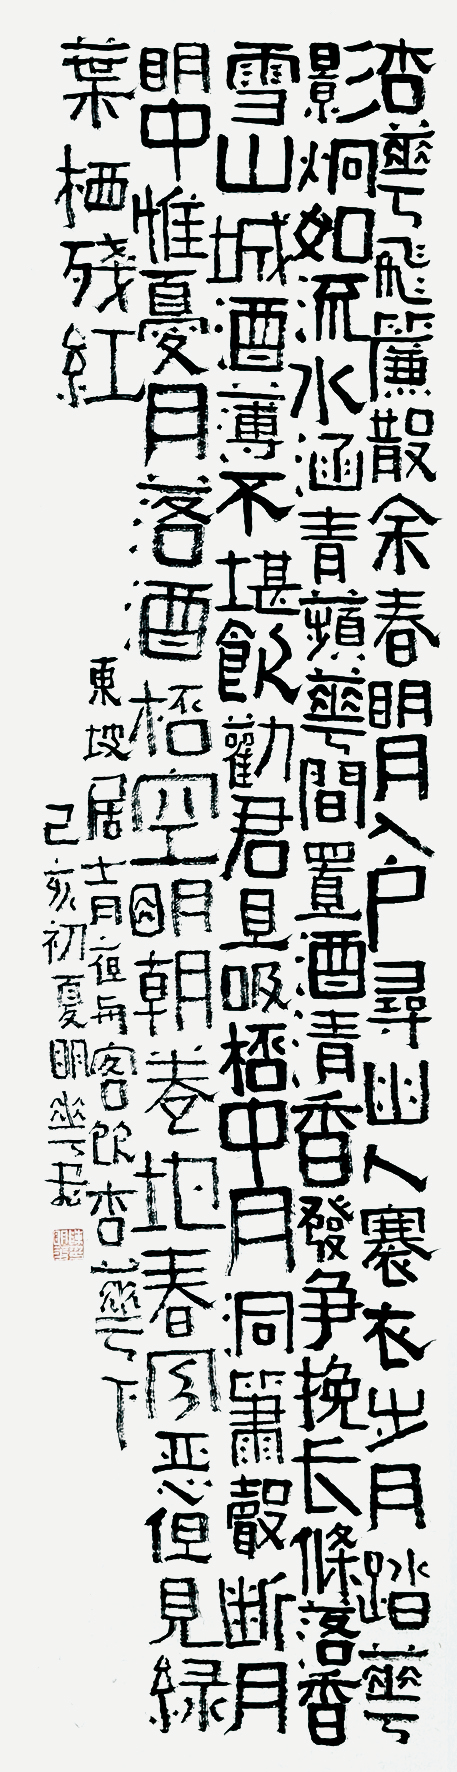 杏華飛簾散余春眀月入户尋幽人褰衣步月踏華
影炯如流水涵青蘋華間置酒清香發争挽长條落香
雪山城酒薄不堪飲勸君且吸桮中月洞簫聲断月
眀中惟憂月落酒桮空朙朝卷地春風恶但見緑
葉栖殘紅
東坡居士月夜與客飲杏華下
己亥初夏眀華書